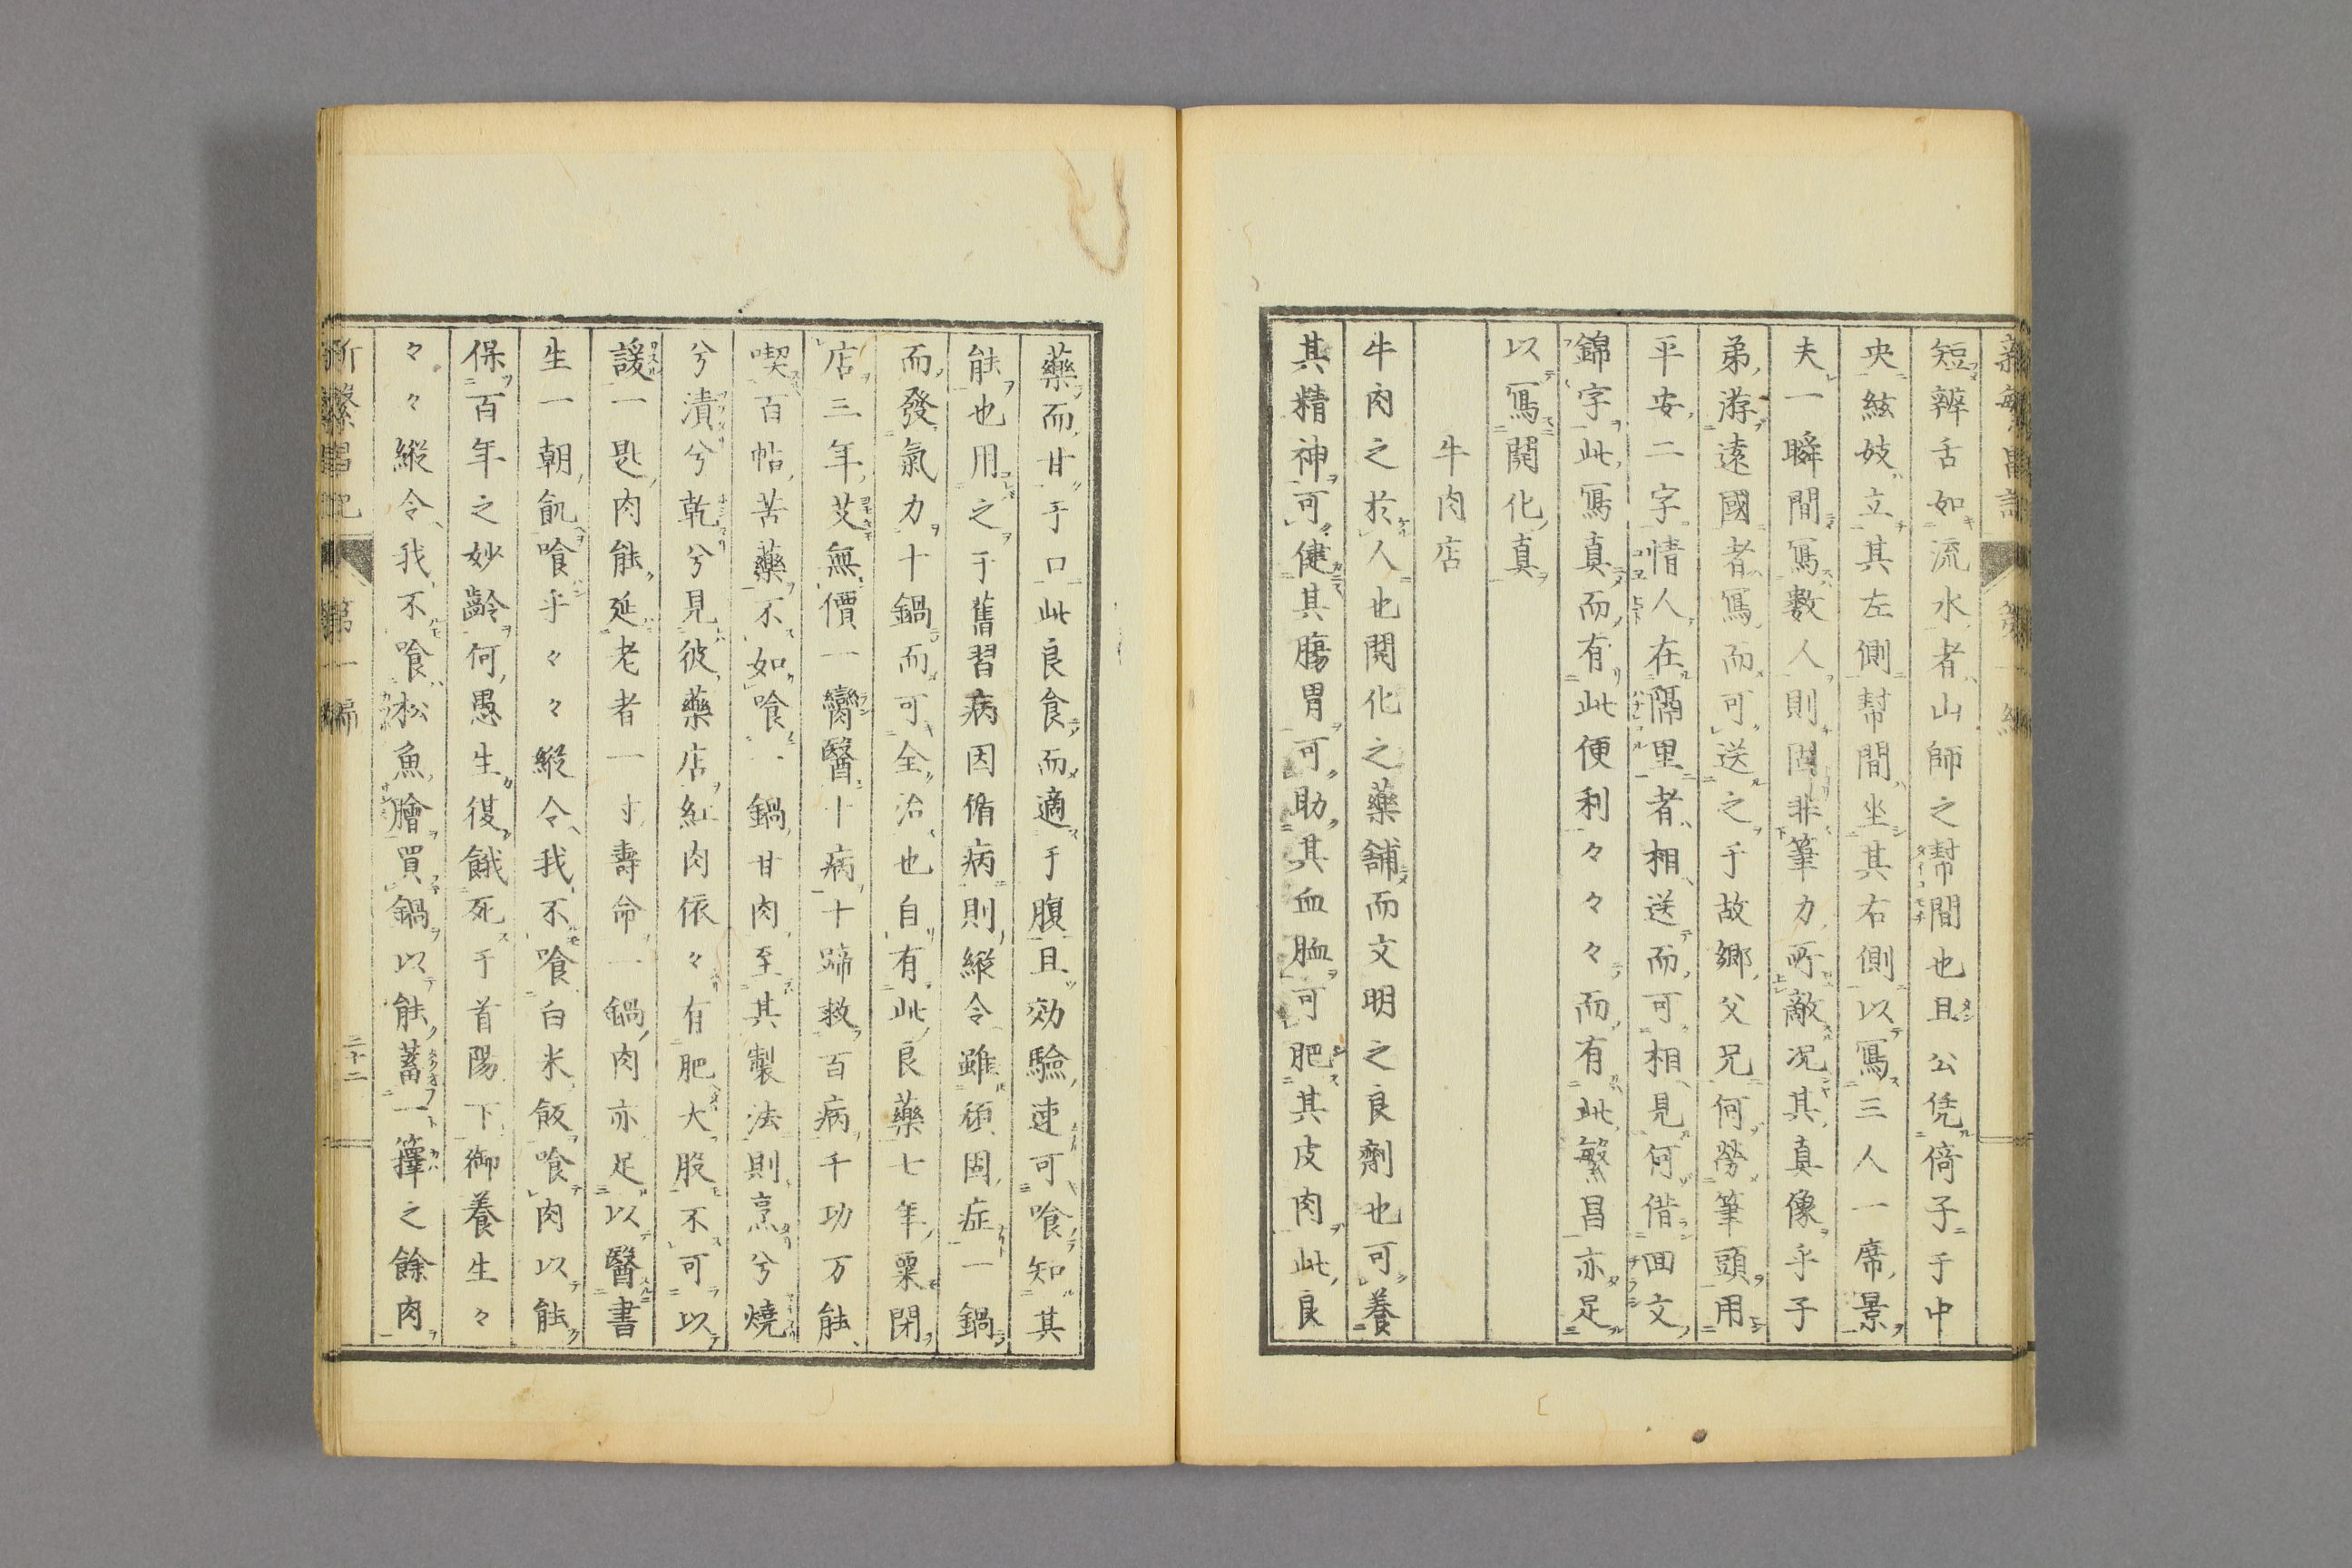 新繁昌記 第一編
短辯舌如流水者山師之幇間也且公凭倚子于中
央絃妓立其左側幇間坐其右側以寫三人一席景
夫一瞬間寫數人則固非筆力所敵况其真像乎子
弟游遠國者寫而可送之于故鄉父兄何勞筆頭用
平安二字情人在隔里者相送而可相見何偕回文
錦字此寫真而有此便利々々々而有此繁昌亦足
以寫開化真
牛肉店
牛肉之於人也開化之藥舖而文明之良劑也可養
其精神可健其膓胃可助其血䘏可肥其皮肉此良
藥而甘于口此良食而適于腹且効驗速可喰知其
能也用之于舊習病因循病則縱令雖頑固症一鍋
而發氣力十鍋而可全治也自有此良藥七年粟閉
店三年艾無價一臠醫十病十蹄救百病千功万能
喫百帖苦藥不如喰一鍋甘肉至其製法則烹兮燒
兮漬兮乾兮見彼藥店紅肉依々有肥大股不可以
諼一匙肉能延老者一寸壽命一鍋肉亦足以醫書
生一朝飢喰乎々々縱令我不喰白米飯喰肉以能
保百年之妙齡何愚生復餓死于首陽下御養生々
々々縱令我不喰松魚膾買鍋以能蓄一籜之餘肉
新繁昌記 第一編 二十二